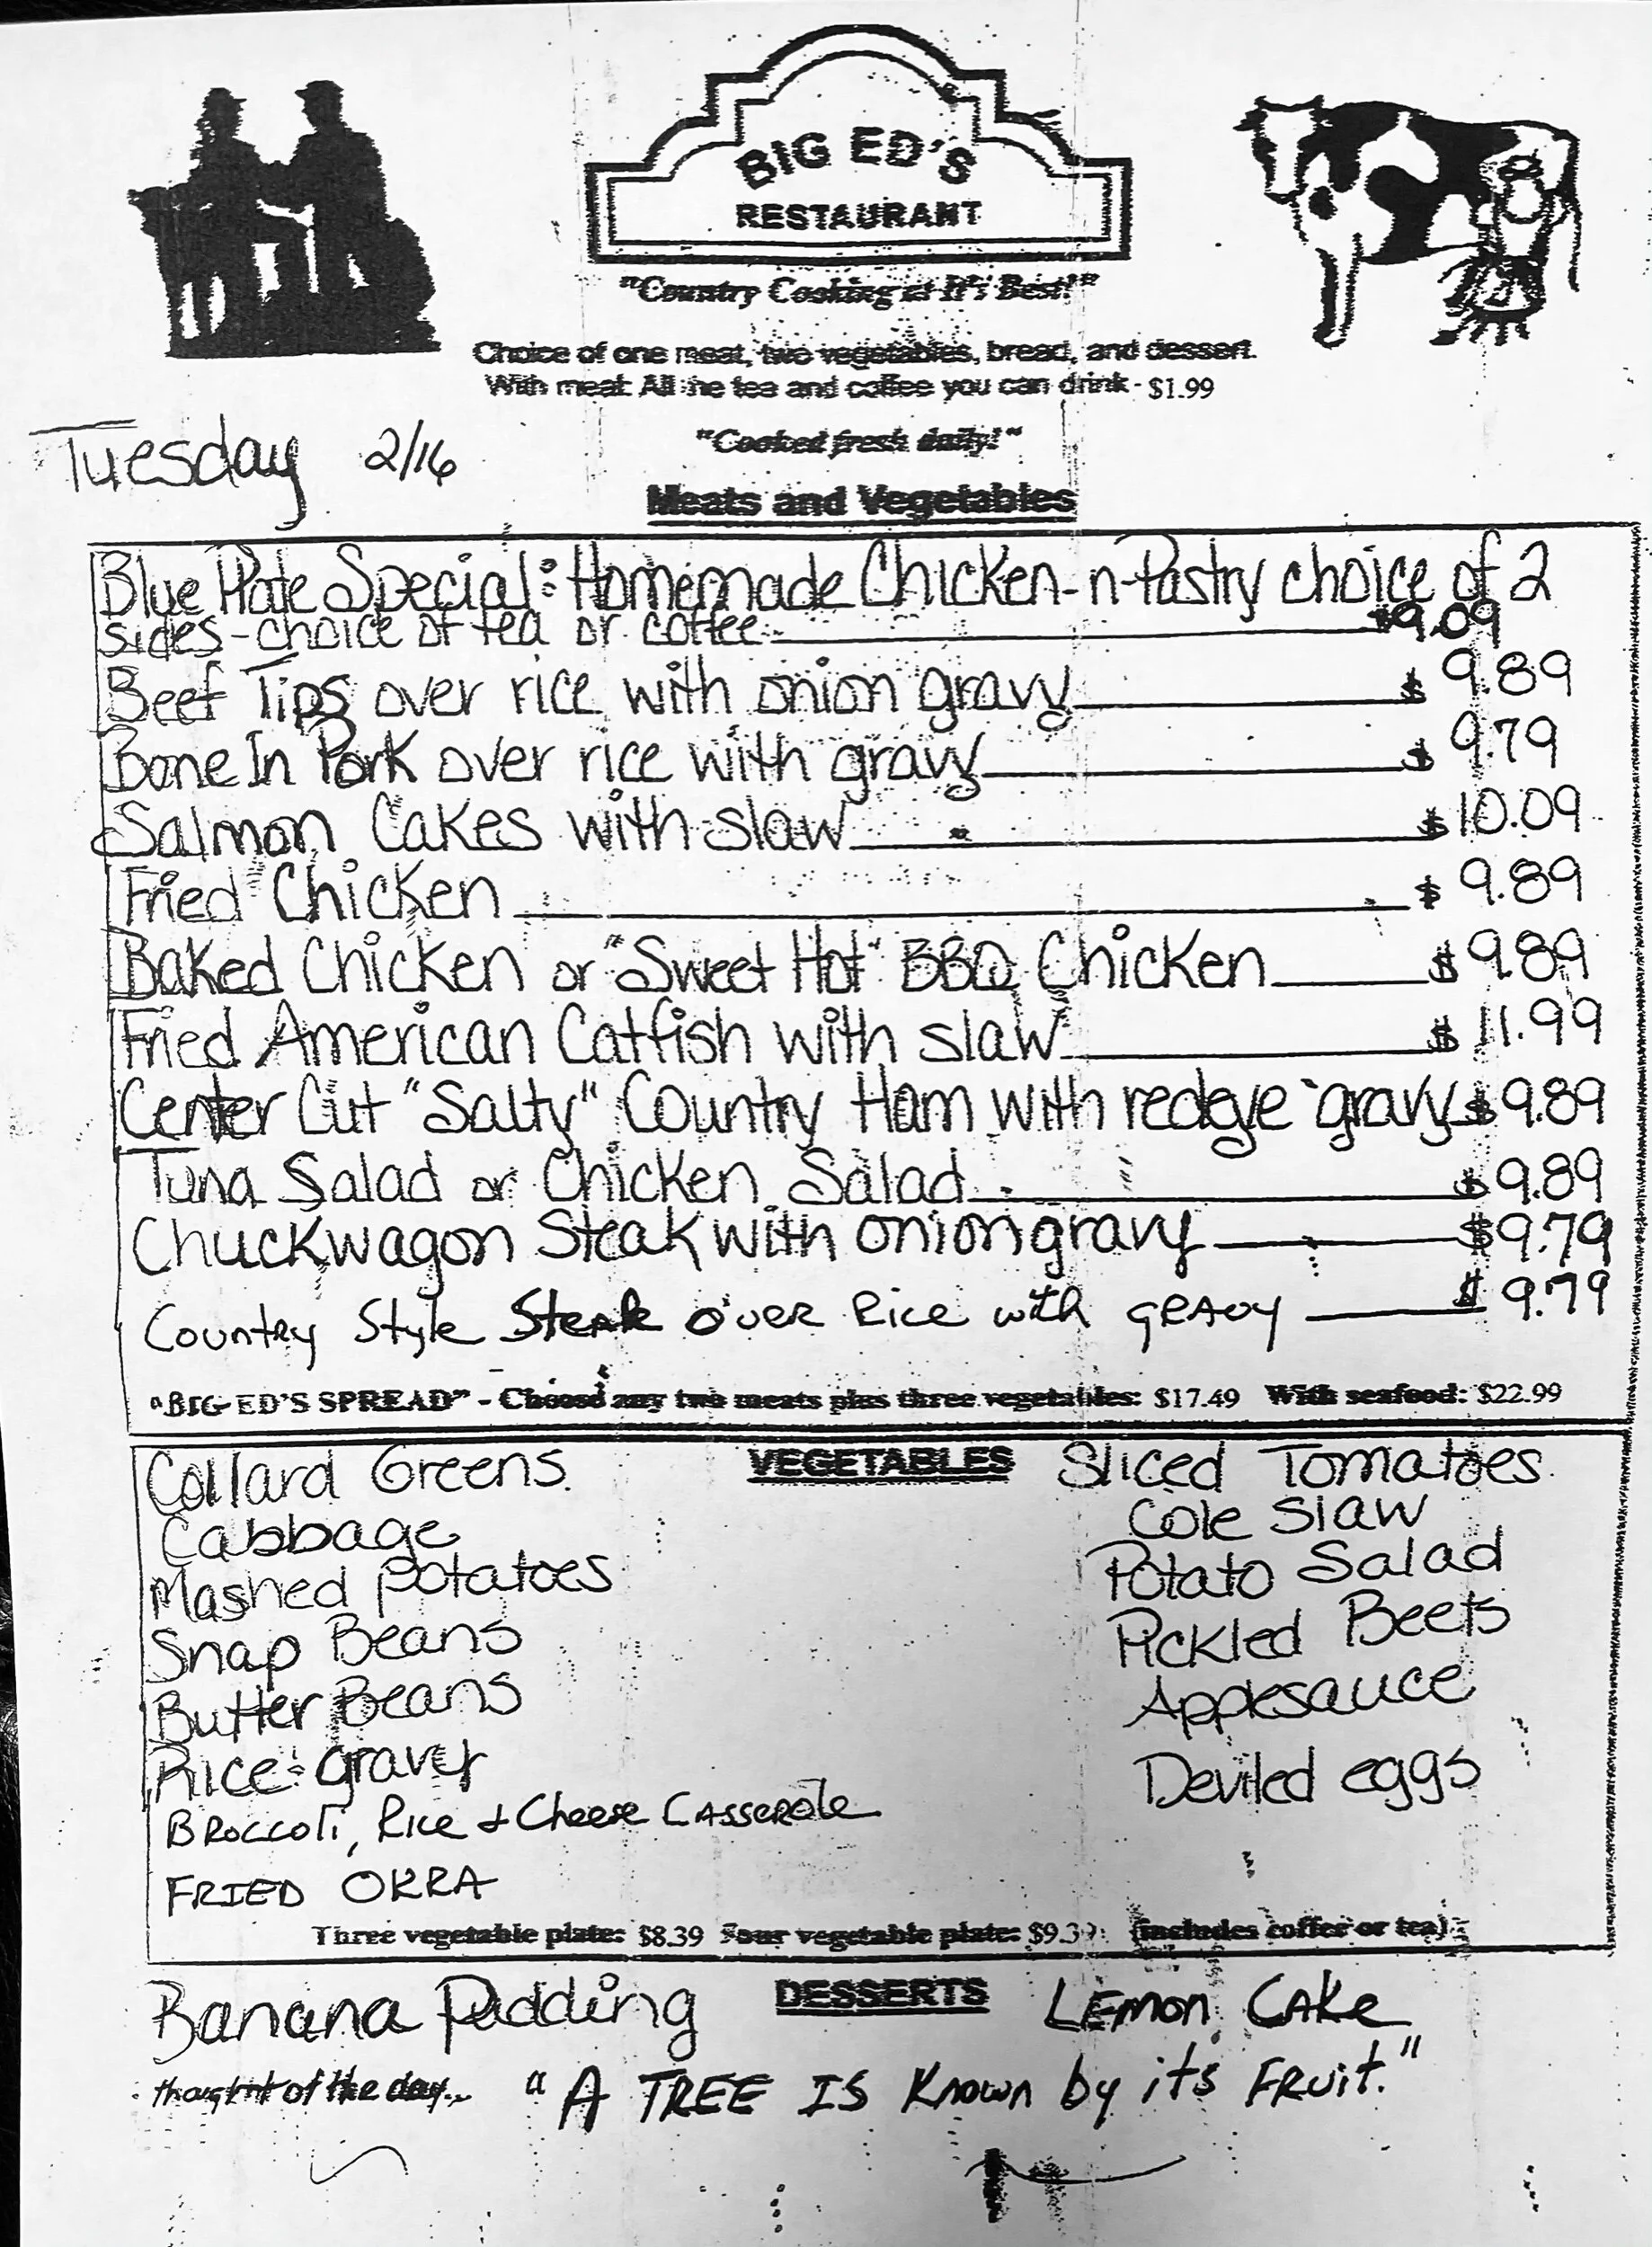 BIG ED'S
RESTAURANT
"Country Cooking at It's Best!"
Choice of one meat, two vegetables, bread, and dessert.
With meat: All the tea and coffee you can drink - $1.99
Tuesday 2/16
"Cooked fresh daily!"
Meats and Vegetables
Blue Plate Special: Homemade Chicken-n-Pastry choice of 2
sides - choice of tea or coffee $9.09
Beef Tips over rice with onion gravy $ 9.89
Bone In Pork over rice with gravy $ 9.79
Salmon Cakes with slaw $10.09
Fried Chicken $ 9.89
Baked Chicken or "Sweet Hot" BBQ Chicken $9.89
Fried American Catfish with slaw $ 11.99
Center Cut "Salty" Country Ham with redeye gravy $9.89
Tuna Salad or Chicken Salad $9.89
Chuckwagon Steak with onion gravy $9.79
Country Style Steak over Rice with GRAvy $ 9.79
"BIG ED'S SPREAD" - Choose any two meats plus three vegetables: $17.49 With seafood: $22.99
VEGETABLES
Collard Greens
Cabbage
Mashed Potatoes
Snap Beans
Butter Beans
Rice: gravy
BROCCOLi, Rice & Cheese CASSEROLe
FRIED OKRA
Sliced Tomatoes
Cole Slaw
Potato Salad
Pickled Beets
Applesauce
Deviled eggs
Three vegetable plate: $8.39 Four vegetable plate: $9.39 (includes coffee or tea)
DESSERTS
Banana Pudding
LEmon CAKe
thought of the day... "A TREE IS Known by its FRuit."